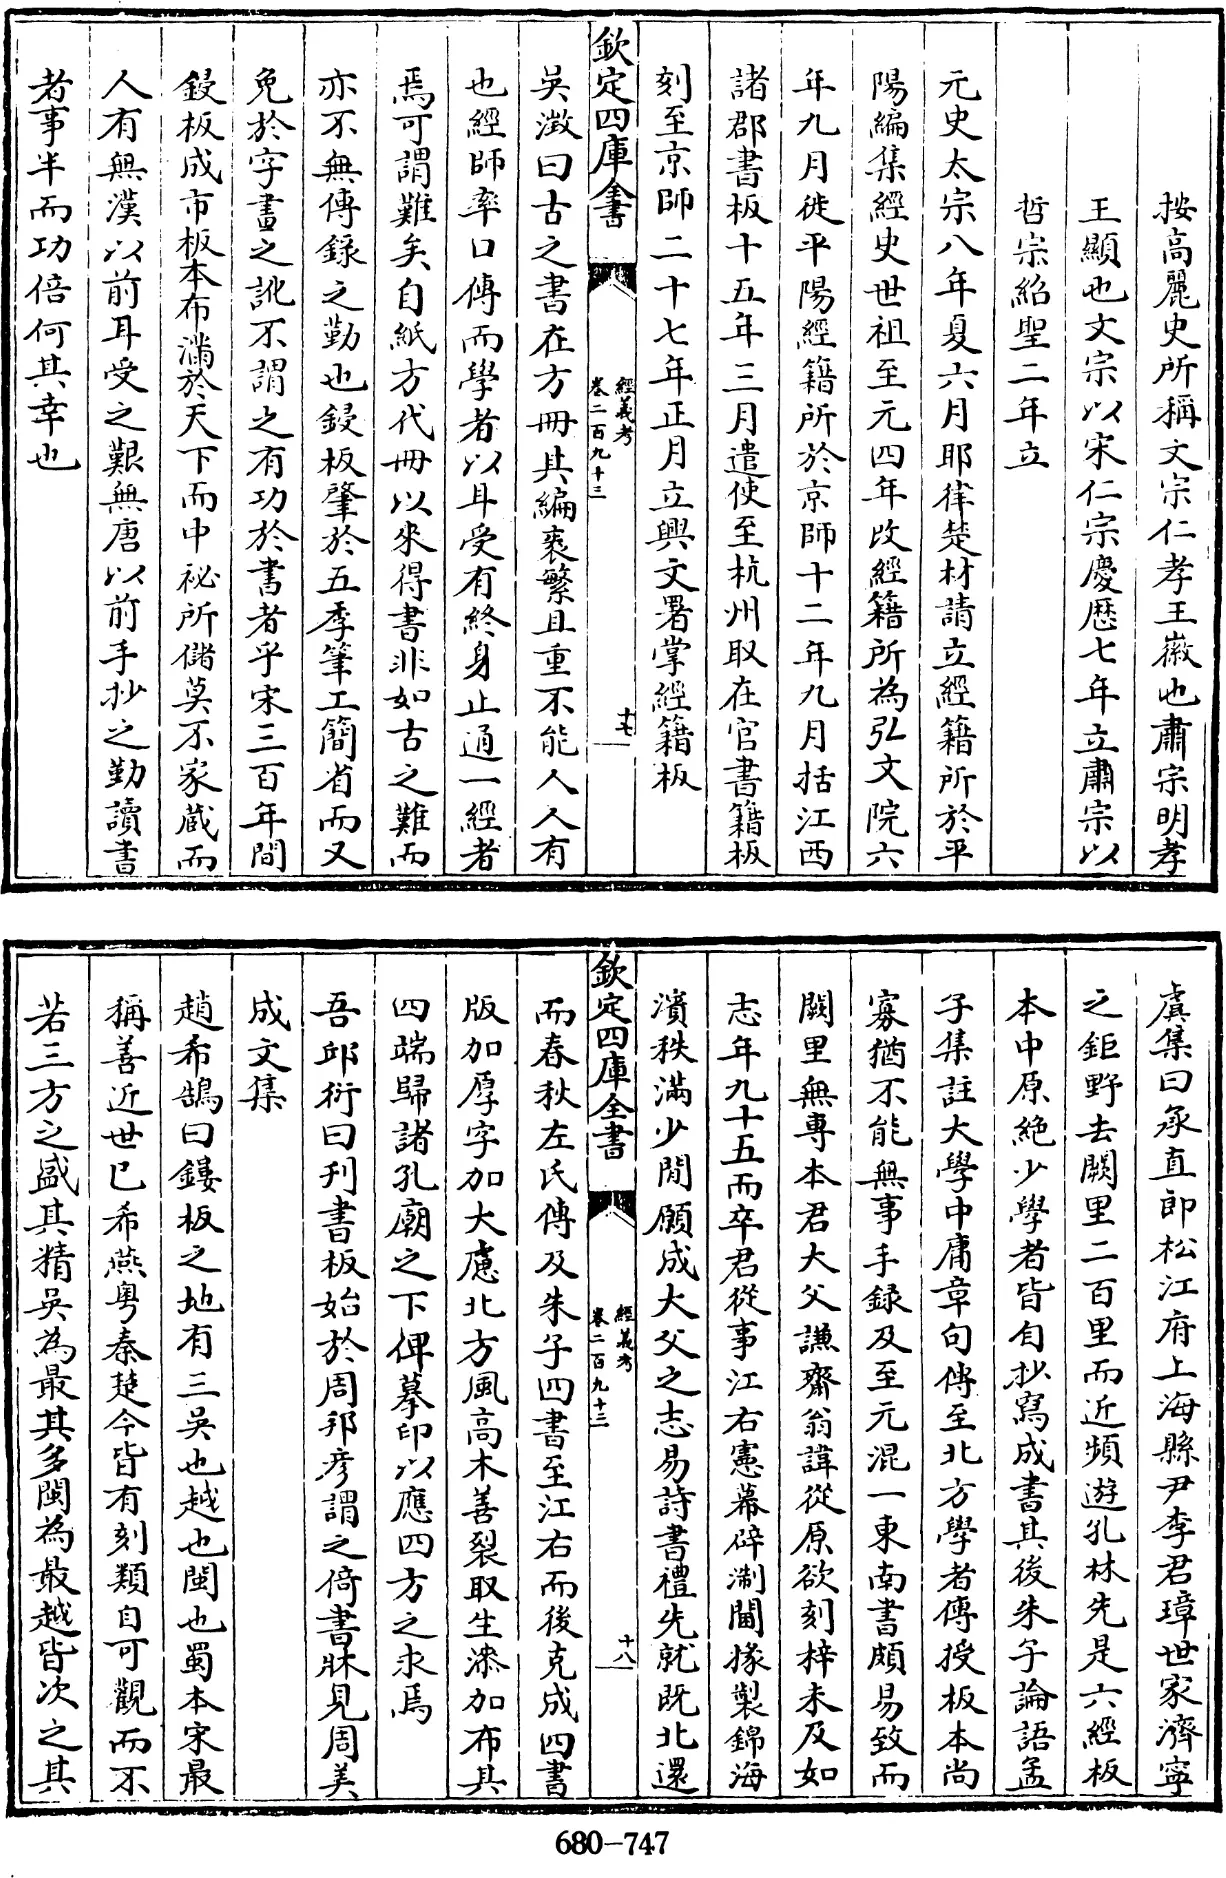 按高麗史所稱文宗仁孝王徽也肅宗明孝
王顯也文宗以宋仁宗慶歴七年立肅宗以
哲宗紹聖二年立
元史太宗八年夏六月耶律楚材請立經籍所於平
陽編集經史世祖至元四年改經籍所為弘文院六
年九月徙平陽經籍所於京師十二年九月括江西
諸郡書板十五年三月遣使至杭州取在官書籍板
刻至京師二十七年正月立興文署掌經籍板
欽定四庫全書
經義考
卷二百九十三
十七
吳澂曰古之書在方冊其編袠繁且重不能人人有
也經師率口傳而學者以耳受有終身止通一經者
焉可謂難矣自紙方代冊以來得書非如古之難而
亦不無傳錄之勤也鋟板肇於五季筆工簡省而又
免於字畫之訛不謂之有功於書者乎宋三百年間
鋟板成市板本布滿於天下而中祕所儲莫不家蔵而
人有無漢以前耳受之艱無唐以前手抄之勤讀書
者事半而功倍何其幸也
虞集曰承直郎松江府上海縣尹李君璋世家濟寧
之鉅野去闕里二百里而近頻遊孔林先是六經板
本中原絶少學者皆自抄寫成書其後朱子論語孟
子集註大學中庸章句傳至北方學者傳授板本尚
寡猶不能無事手録及至元混一東南書頗易致而
闕里無專本君大父謙齋翁諱從原欲刻梓未及如
志年九十五而卒君從事江右憲幕辟淛閫掾製錦海
濱秩滿少閒願成大父之志易詩書禮先就既北還
欽定四庫全書
經義考
卷二百九十三
十八
而春秋左氏傳及朱子四書至江右而後克成四書
版加厚字加大慮北方風高木善裂取生漆加布其
四端歸諸孔廟之下俾摹印以應四方之求焉
吾邱衍曰刋書板始於周邦彦謂之倚書牀見周美
成文集
趙希鵠曰鏤板之地有三吳也越也閩也蜀本宋最
稱善近世已希燕粤秦楚今皆有刻類自可觀而不
若三方之盛其精吳為最其多閩為最越皆次之其
680-747